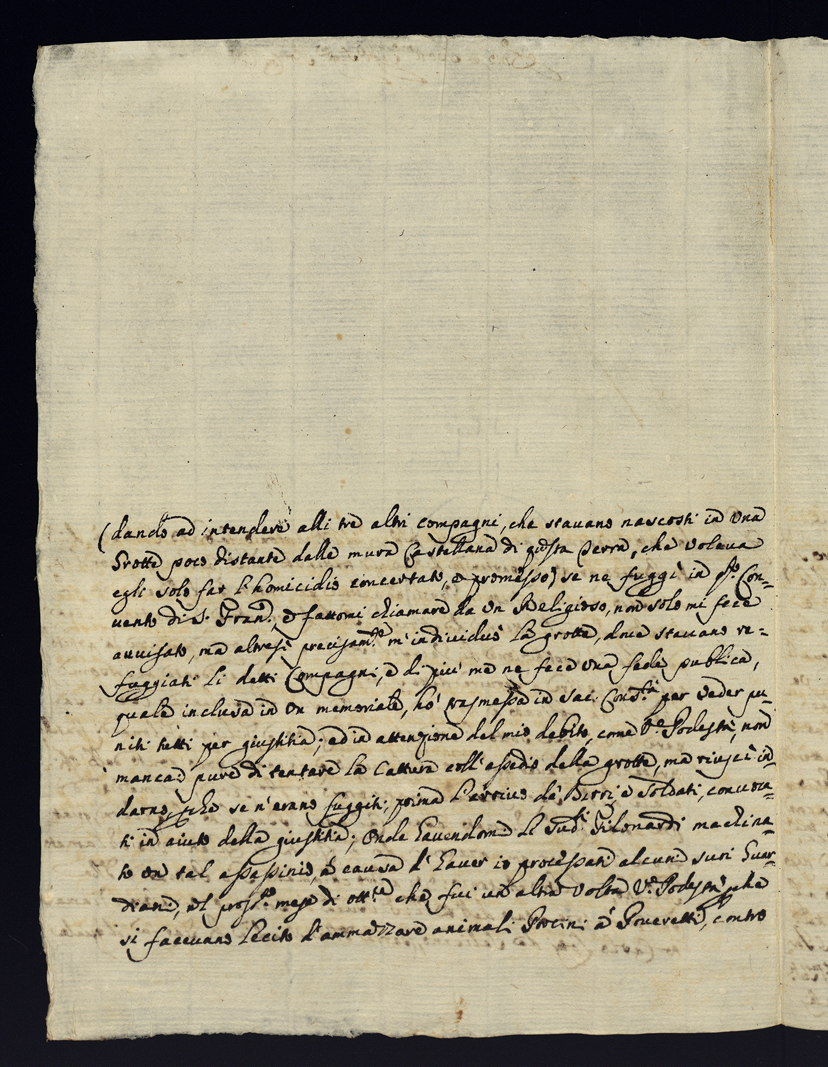 (dando ad intendere alli tre altri compagni, che stavano nascosti in una
Grotte poco distante dalle mura Castellana di questa Terra, che voleva
egli solo far l'homicidio concertato, e promesso) se ne fuggì in q.sto Con=
vento di S. Fran.co, e fattomi chiamare da un Religioso, non solo mi fece
avvisato, ma altresì precisam.te m'individuò la grotte, dove stavano re=
fuggiati li detti Compagni, e di più me ne fece una fede publica,
quale inclusa in un memoriale, hò trasmessa in Sac. Cons.ta per veder pu=
niti tutti per giustitia; ed in attenzione del mio debito, come V.e Podestà, non
mancai pure di tentare la Cattura coll'assedio della grotte, ma riuscì in=
darno, p.che se n'erano fuggiti prima l'arrivo de' Birri, e Soldati, convoca=
ti in aiuto della giustitia; Onde havendomi li Sud.ti Gilonardi machina=
to un tal assassinio, à causa d'haver io processati alcuni suoi Guar=
diani, nel pross.o mese di ott.re che fui un altra volta V.e Podestà, p.che
si facevano lecito d'ammazzare animali Porcini à Poveretti, contro